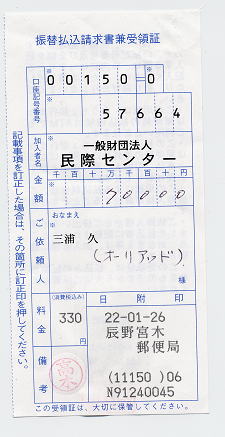 振替払込請求書兼受領証
口座記号番号 00150-0
57664
加入者名 一般財団法人
民際センター
金額 千百十万千百十円
70000
ご依頼人 おなまえ
三浦 久
(オーリアッド)
様
料金 (消費税込み) 330 円
日附印
22-01-26
辰野宮木
郵便局
(11150 )06
N91240045
備考
この受領証は、大切に保管してください。
記載事項を訂正した場合は、その箇所に訂正印を押してください。